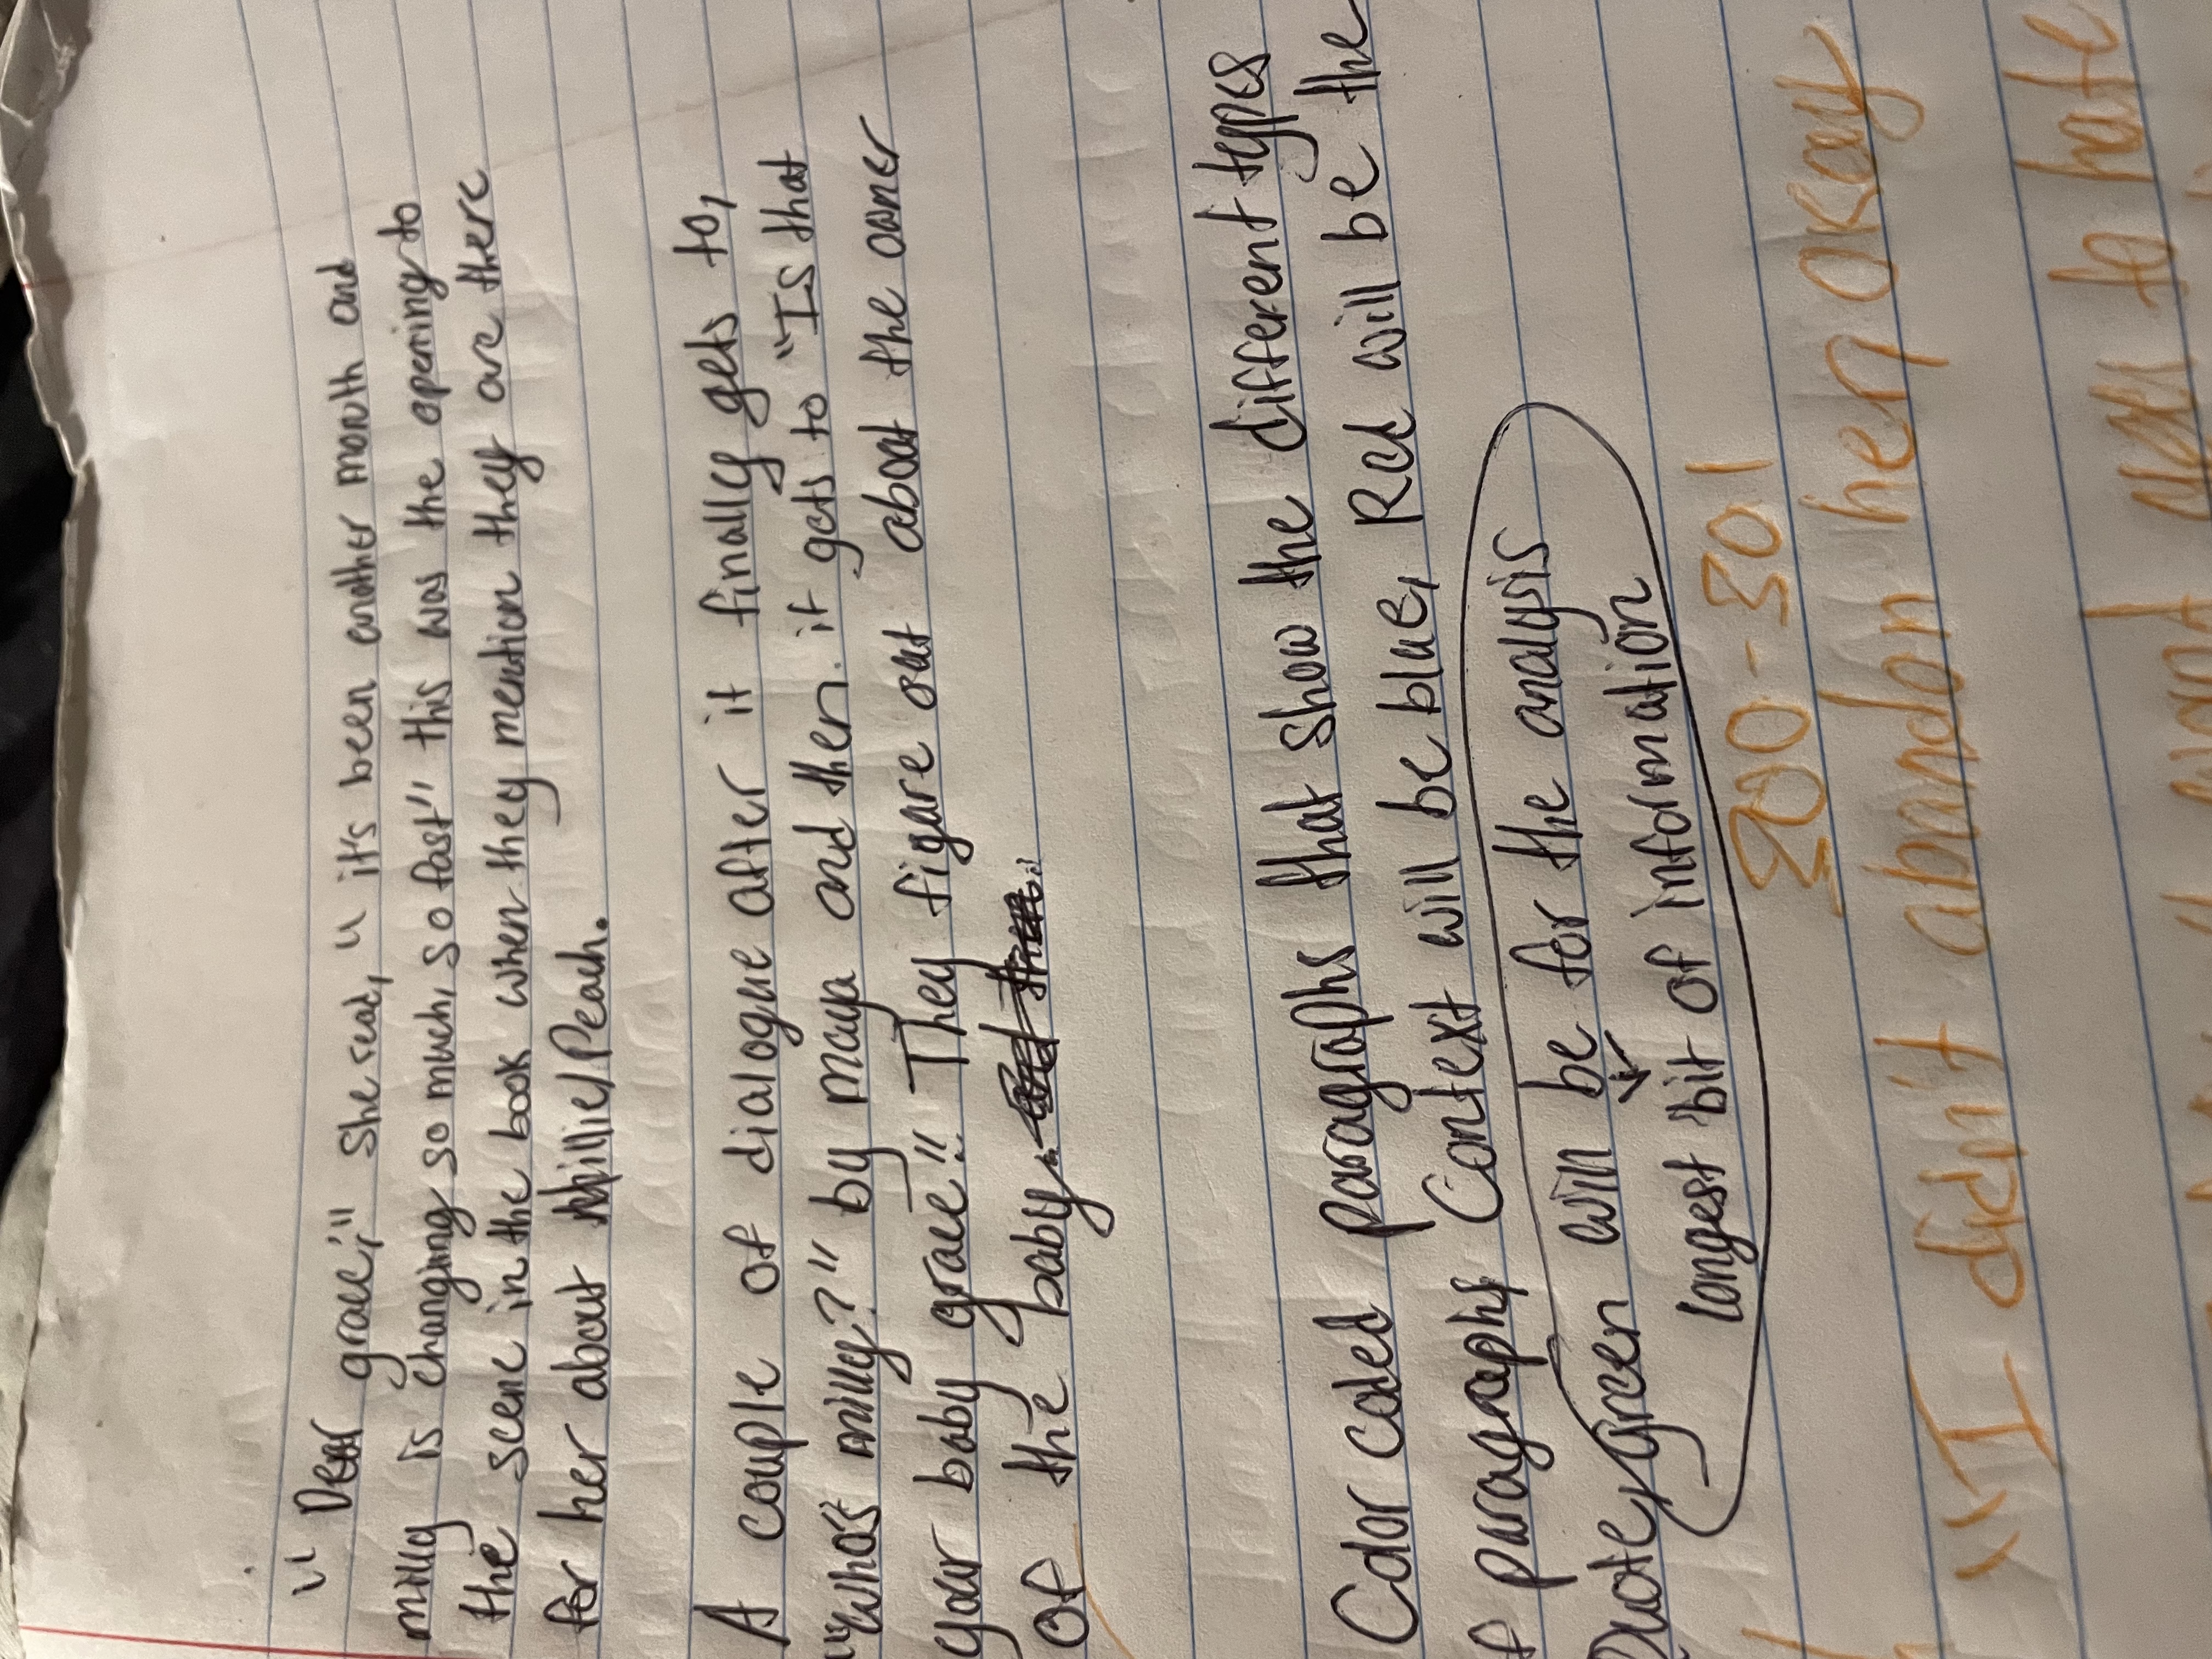 "Dear grace," She read, " it's been another month and
milly is changing so much, so fast" this was the opening to
the scene in the book when they mention they are there
for her about Millie/Peach.
A couple of dialogue after it finally gets to,
"Who's milly?" by maya and then it gets to "Is that
your baby grace." They figure out about the owner
of the baby
Color coded paragraphs that show the different types
of paragraphs Context will be blue, Red will be the
Quote, Green will be for the analysis
longest bit of information
300-301
"I didn't abandon her okay
to hate